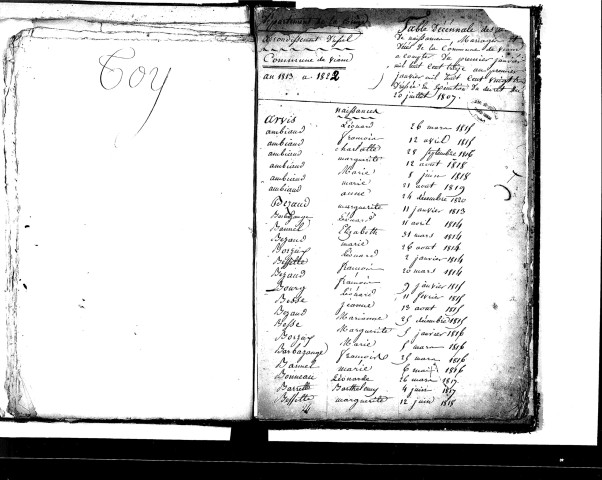 Toy
Département de la
Arrondissement d'ussel
Commune de viam
an 1813 a 1822
Table Décennale des
De naissances, Mariages et
Décès de la Commune de viam
a compter du premier janvier
mil huit Cent treize au premier
janvier mil huit Cent vingt
Dressée en execution du decret du
20 juillet 1807.
naissances
arvis Léonard 26 mars 1815
ambiaud francois 12 avril 1815
ambiaud charlotte 28 septembre 1816
ambiaud marguerite 12 aout 1818
ambiaud Marie 8 juin 1818
ambiaud marie 21 aout 1819
ambiaud anne 24 décembre 1820
Bezaud marguerite 11 janvier 1813
Léonard 11 avril 1814
Bannel Elizabette 31 mars 1814
Bezaud marie 26 aout 1814
Léonard 2 janvier 1814
Bessette francois 20 mars 1814
Bezaud francois 9 janvier 1815
Boury Léonard 11 fevrier 1815
Besse jeanne 13 aout 1815
Bezaud Marianne 25 décembre 1815
Besse Marguerite 5 janvier 1816
Marie 5 mars 1816
Barbazange francois 25 mars 1816
Bannel marie 6 mai 1816
Bonneau Léonarde 26 mars 1817
Barrette Barthelemy 4 juin 1817
Bessette marguerite 12 juin 1818